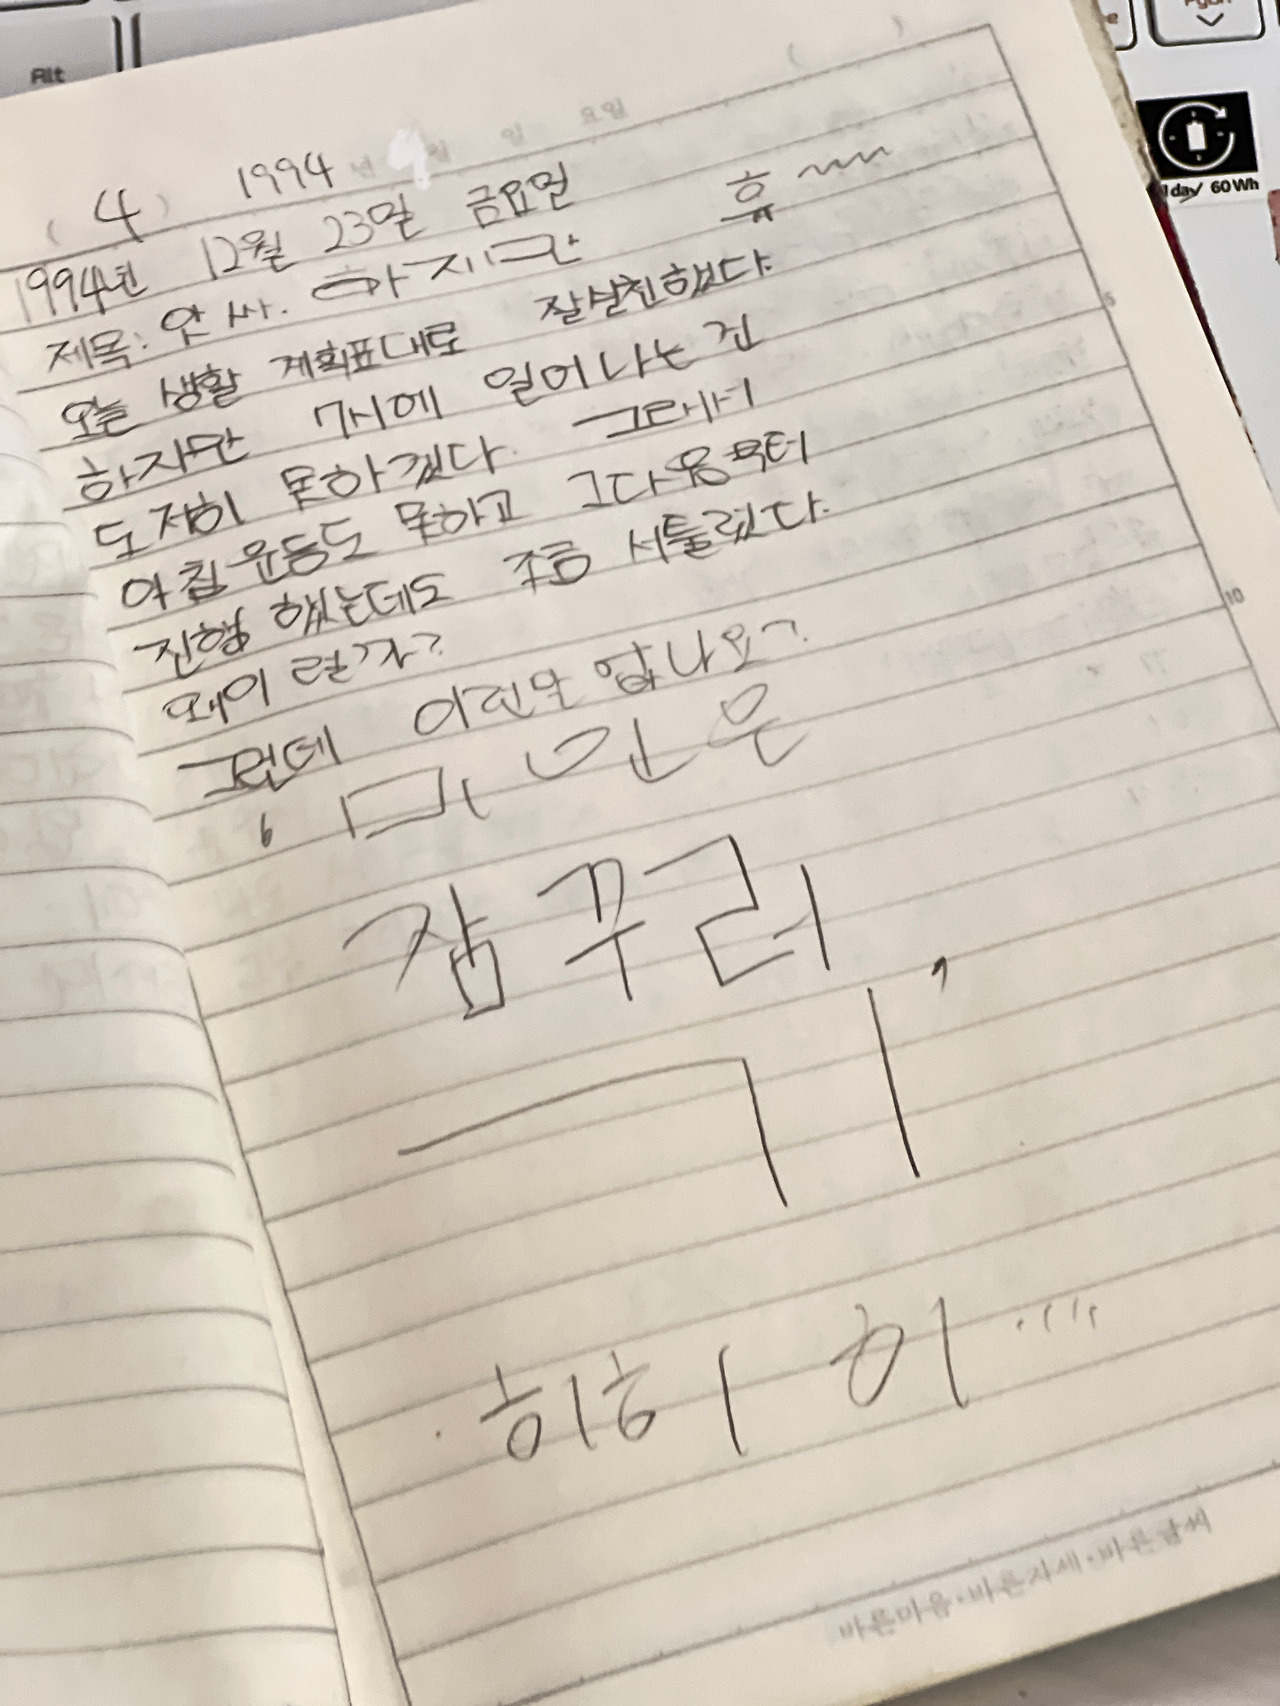 Alt
PgDn
1 day/ 60Wh
년 월 일 요일 ( )
( 4 ) 1994
1994년 12월 23일 금요일
제목: 앗싸. 하지만 휴~~~
오늘 생활 계획표대로 잘실천했다.
하지만 7시에 일어나는 건
도저히 못하겠다. 그래서
아침운동도 못하고 그다음부터
진행 했는데도 조금 서툴렀다.
왜이 럴까?
그런데 이런말 압나요?
' 미인은
잠꾸러
기'
히히 히....
5
10
바른마음·바른자세·바른글씨